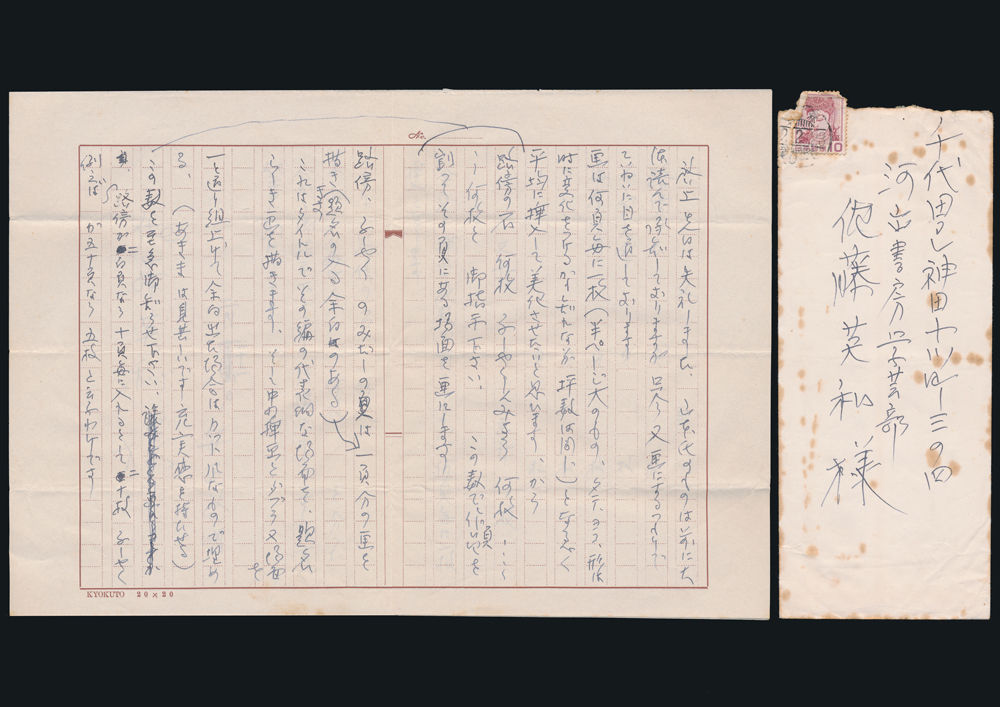 No.
拝上 先日は失礼しました、山本氏のものは前に大
体読んで承知して居りますが 只今又画にするつもりで
ていねいに目を通して居ります
画は何頁毎に一枚(半ページ大のもの、タテ、ヨコ、形は
時に変化をつけるかも知れないが 坪数は同じ)となるべく
平均に挿入して美化させたいと思います、から
路傍の石 何枚 ふしゃくしんみょう 何枚 ・・・・
何枚と 御指示下さい、この数で作品の頁を
割つてその頁に有る場面を画にします
路傍、ふしゃく のみだしの頁は 一頁分の画を
描き(題名の入る余白のある)
これはタイトルでその編の代表的な場面を、題名
らしき画を描きます、そして中の挿画とダブらぬ場面を
一と通り組上げて余白の出た場合はカットルなもので埋め
る、(あきまは見苦しいです 充実感を持たせる)
この数を至急御知らせ下さい、
路傍が 百頁なら 十頁毎に入れるとして 十枚 ふしゃく
例えば が五十頁なら 五枚と云うわけです
KYOKUTO 20×20
千代田区神田小川町三の四
河出書房 学芸部
佐藤英和様
10